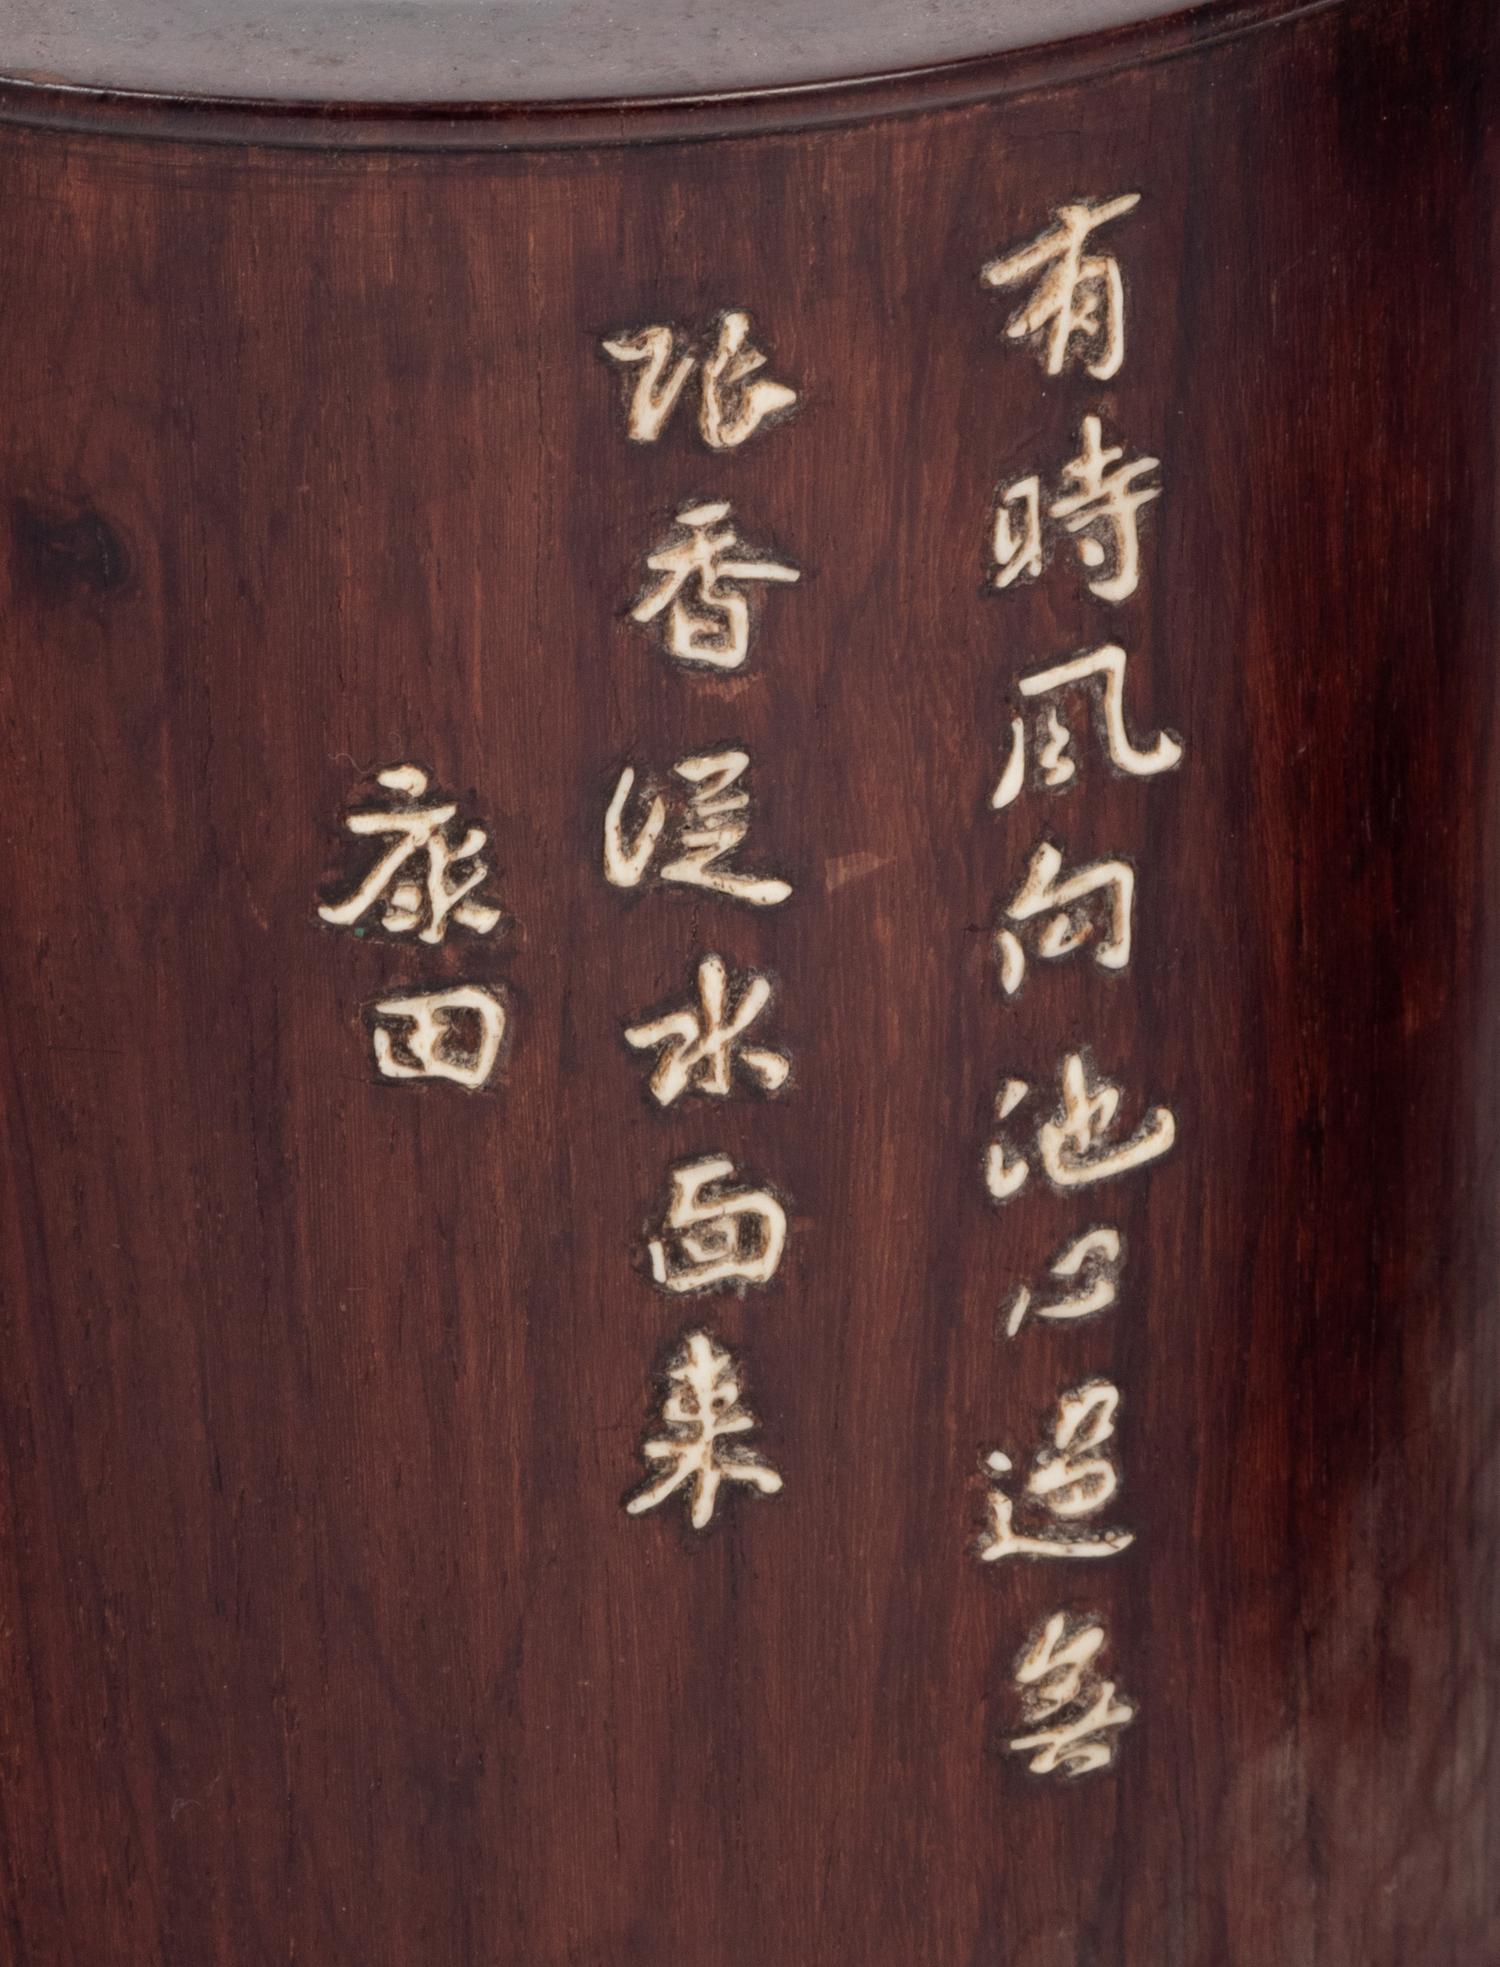 有時風向池心過無
限香從水面來
康田